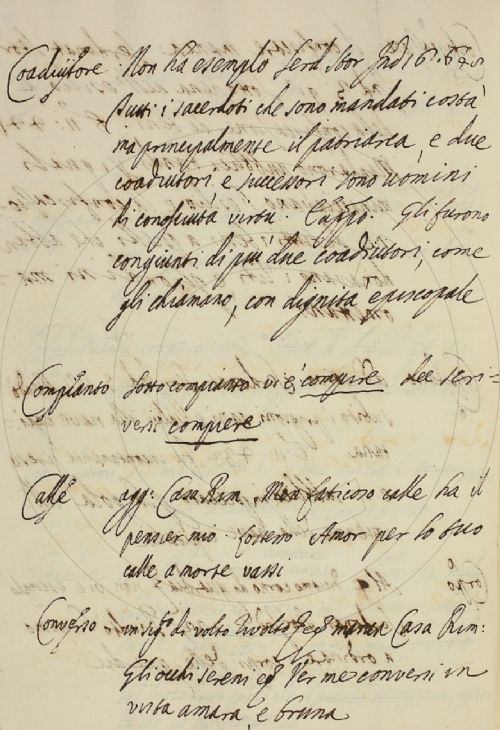 Coadiutore Non ha esempio Serd Stor Ind 16. 645
Tutti i sacerdoti che sono mandati costà
ma principalmente il patriarca, e due
coadiutori e successori sono uomini
di conosciuta virtù. Cappo. Gli furono
congiunti di più due coadiutori, come
gli chiamano, con dignità episcopale
Compianto Sotto compianto vi è compire dee scri-
versi compiere
Calle agg: Casa Rim. Men faticoso calle ha il
pensier mio fossero Amor per lo suo
calle a morte vassi
Converso in sig. di volto rivolto eg manca Casa Rim:
Gli occhi sereni eg Per me conversi in
vista amara, e bruna